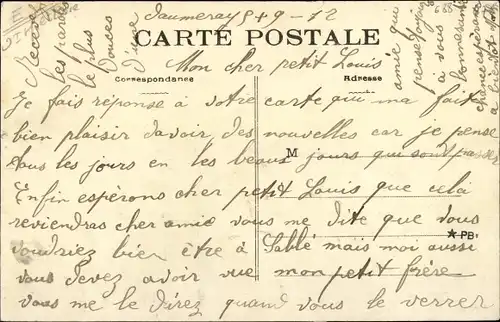 Daumeray 9 + 9 - 12
CARTE POSTALE
Mon cher petit Louis
Correspondance
Adresse
Je fais réponse à votre carte qui ma fait
bien plaisir davoir des nouvelles car je pense
tous les jours en les beaux jours qui sont passer
M
Enfin espérons cher petit Louis que celà
reviendras cher amie vous me dite que vous
PB.
voudriez bien être à Sablé mais moi aussi
vous devez avoir vue mon petit frère
vous me le direz quand vous le verrer
Recevez
les
le plus
Douces
D'une
amie qui
pense
à vous